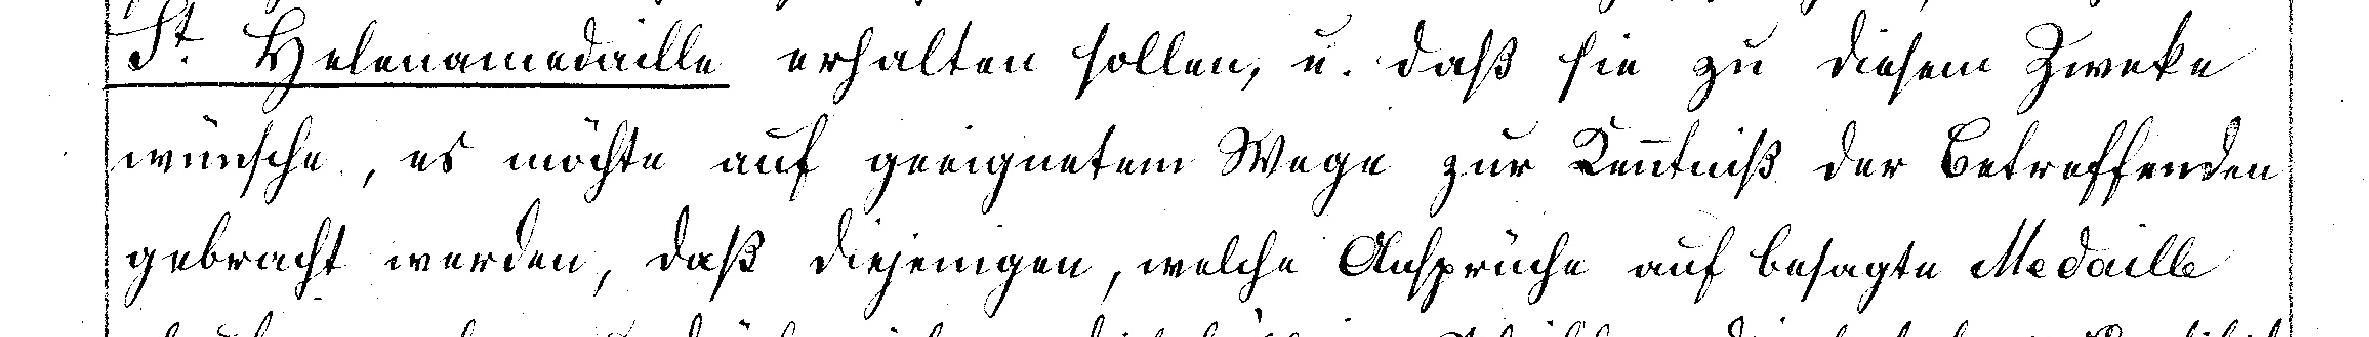 St. Helenamedaille erhalten sollen, u. daß sie zu diesem Zweke
wünsche, es möchte auf geeignetem Wege zur Ken̄tniß der Betreffenden
gebracht werden, daß diejenigen, welche Ansprüche auf besagte Medaille